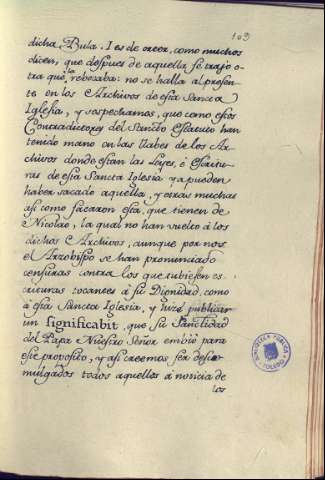 103
dicha Bula. I es de creer, como muchos
dicen, que despues de aquella se trajo o-
tra que la rebocaba: no se halla al presen-
te en los Archivos de esta Sancta
Iglesia, y sospechamos, que como estos
Contradictores del Sancto Estatuto han
tenido mano en las llabes de los Ar-
chivos donde estan las Leyes, è Escritu-
ras de esta Sancta Iglesia ya pueden
haber sacado aquella, y otras muchas
asi como sacaron esta, que tienen de
Nicolao, la qual no han vuelto à los
dichos Archivos, aunque por nos
el Arzobispo se han pronunciado
censuras contra los que tubiesen es-
crituras tocantes à su Dignidad, como
à esta Sancta Iglesia, y hizo publicar
un significabit, que su Sanctidad
del Papa Nuestro Señor embiò para
este proposito, y asi creemos ser desco-
mulgados todos aquellos à noticia de
los
BIBLIOTECA PUBLICA
TOLEDO